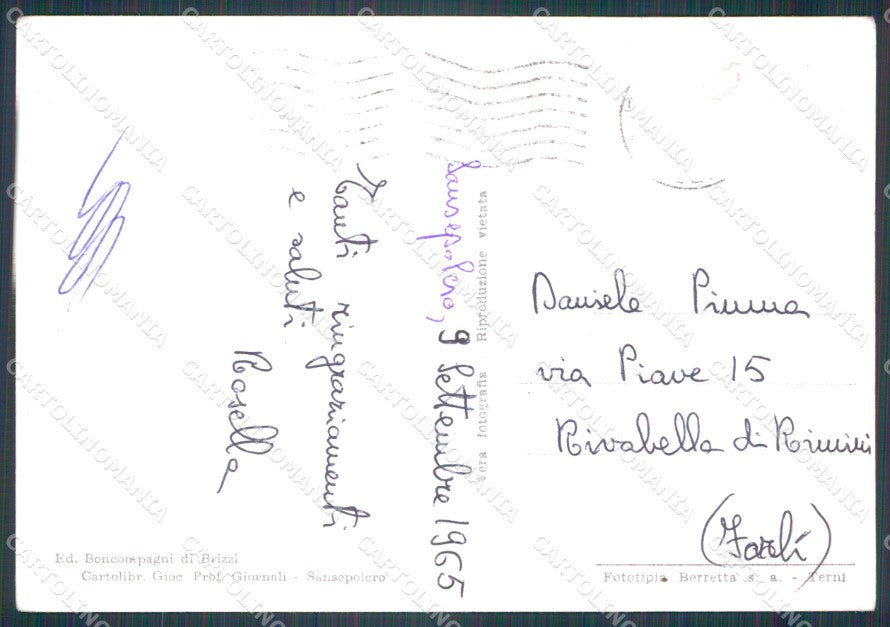 Sansepolcro, 9 Settembre 1965
Tanti ringraziamenti
e saluti
Rosella
Vera fotografia Riproduzione vietata
Daniele Pimma
via Piave 15
Rivabella di Rimini
(Forlì)
Ed. Boncompagni di Brizzi
Cartolibr. Gioc Prof. Giornali - Sansepolcro
Fototipia Berretta s. a. - Terni
CARTOLINOMANIA